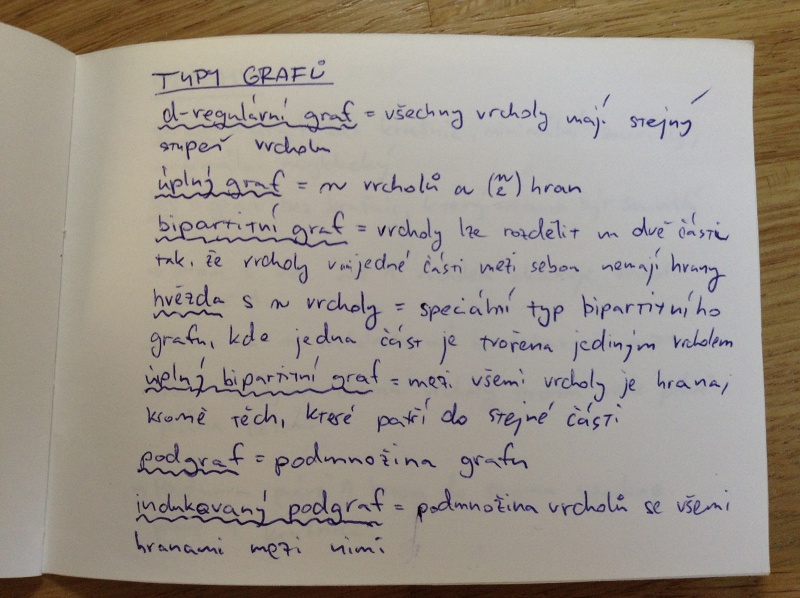 TYPY GRAFŮ
d-regulární graf = všechny vrcholy mají stejný
stupeň vrcholu
úplný graf = n vrcholů a (n 2) hran
bipartitní graf = vrcholy lze rozdělit na dvě části
tak, že vrcholy v jedné části mezi sebou nemají hrany
hvězda s n vrcholy = speciální typ bipartitního
grafu, kde jedna část je tvořena jediným vrcholem
úplný bipartitní graf = mezi všemi vrcholy je hrana,
kromě těch, které patří do stejné části
podgraf = podmnožina grafu
indukovaný podgraf = podmnožina vrcholů se všemi
hranami mezi nimi